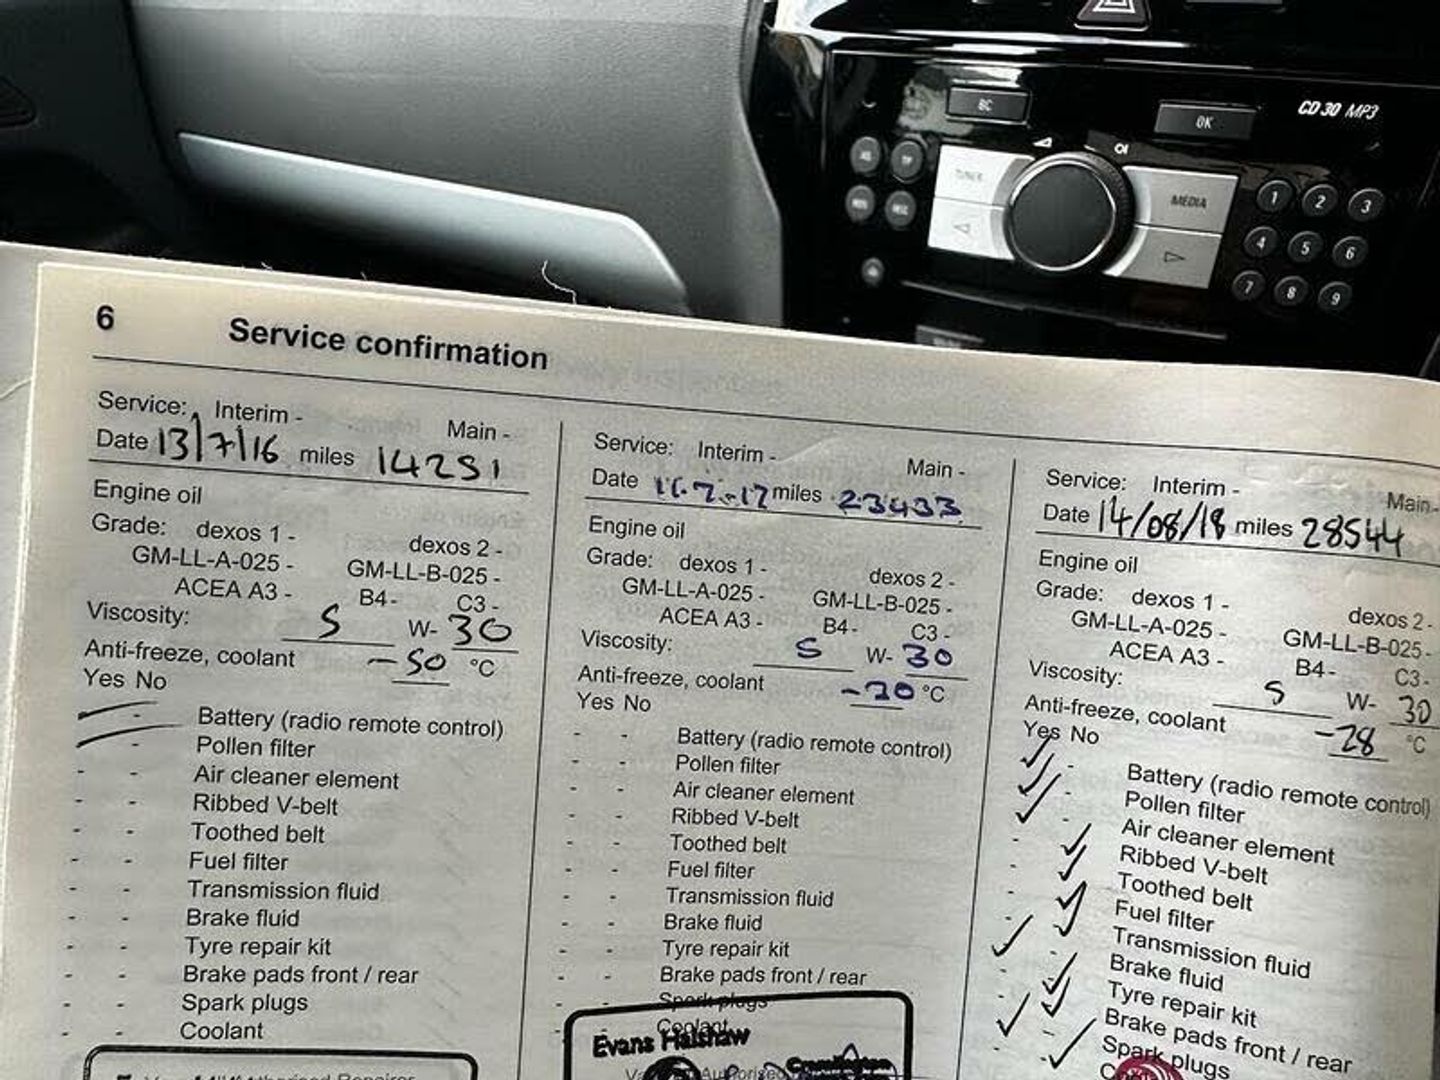 BC
OK
CD 30 MP3
TUNER
MEDIA
1 2 3
4 5 6
7 8 9
6 Service confirmation
Service: Interim - Main -
Date 13/7/16 miles 14251
Engine oil
Grade: dexos 1 - dexos 2 -
GM-LL-A-025 - GM-LL-B-025 -
ACEA A3 - B4 - C3 -
Viscosity: 5 W- 30
Anti-freeze, coolant -50 °C
Yes No
- Battery (radio remote control)
- Pollen filter
- - Air cleaner element
- - Ribbed V-belt
- - Toothed belt
- - Fuel filter
- - Transmission fluid
- - Brake fluid
- - Tyre repair kit
- - Brake pads front / rear
- - Spark plugs
- - Coolant
Service: Interim - Main -
Date 11.7.17 miles 23433
Engine oil
Grade: dexos 1 - dexos 2 -
GM-LL-A-025 - GM-LL-B-025 -
ACEA A3 - B4 - C3 -
Viscosity: 5 W- 30
Anti-freeze, coolant -20 °C
Yes No
- - Battery (radio remote control)
- - Pollen filter
- - Air cleaner element
- - Ribbed V-belt
- - Toothed belt
- - Fuel filter
- - Transmission fluid
- - Brake fluid
- - Tyre repair kit
- - Brake pads front / rear
- - Spark plugs
- - Coolant
Evans Halshaw
Service: Interim - Main -
Date 14/08/18 miles 28544
Engine oil
Grade: dexos 1 - dexos 2 -
GM-LL-A-025 - GM-LL-B-025 -
ACEA A3 - B4 - C3 -
Viscosity: 5 W- 30
Anti-freeze, coolant -28 °C
Yes No
✓ - Battery (radio remote control)
✓ - Pollen filter
✓ - Air cleaner element
- ✓ Ribbed V-belt
- ✓ Toothed belt
- ✓ Fuel filter
- ✓ Transmission fluid
✓ - Brake fluid
- ✓ Tyre repair kit
- ✓ Brake pads front / rear
✓ - Spark plugs
- ✓